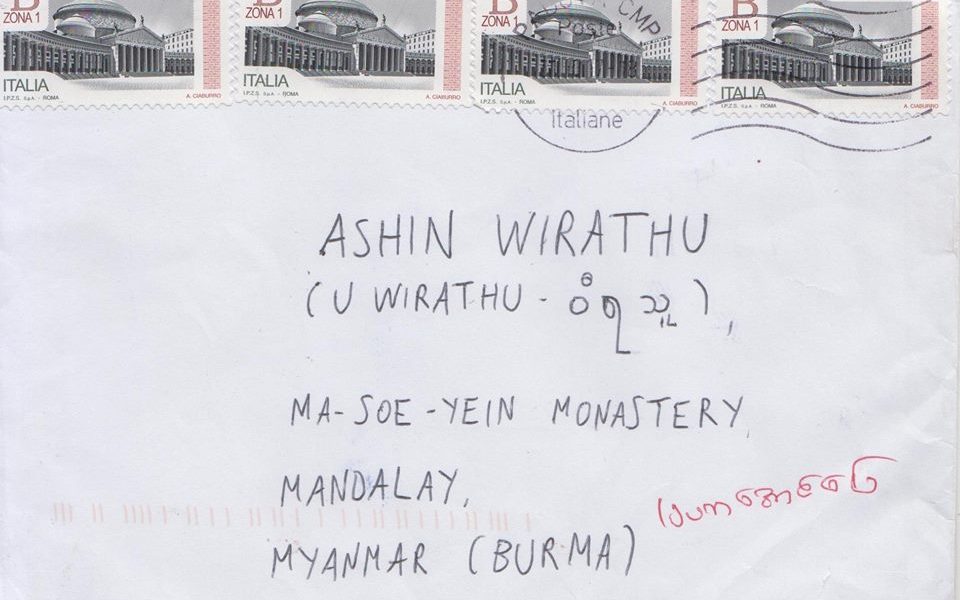 B ZONA 1 B ZONA 1 B ZONA 1 B ZONA 1
CMP
Poste
ITALIA ITALIA ITALIA ITALIA
I.P.Z.S. S.p.A. - ROMA A. CIABURRO I.P.Z.S. S.p.A. - ROMA A. CIABURRO I.P.Z.S. S.p.A. - ROMA A. CIABURRO I.P.Z.S. S.p.A. - ROMA A. CIABURRO
Italiane
ASHIN WIRATHU
(U WIRATHU - ဝီရသူ),
MA-SOE-YEIN MONASTERY,
MANDALAY,
MYANMAR (BURMA)